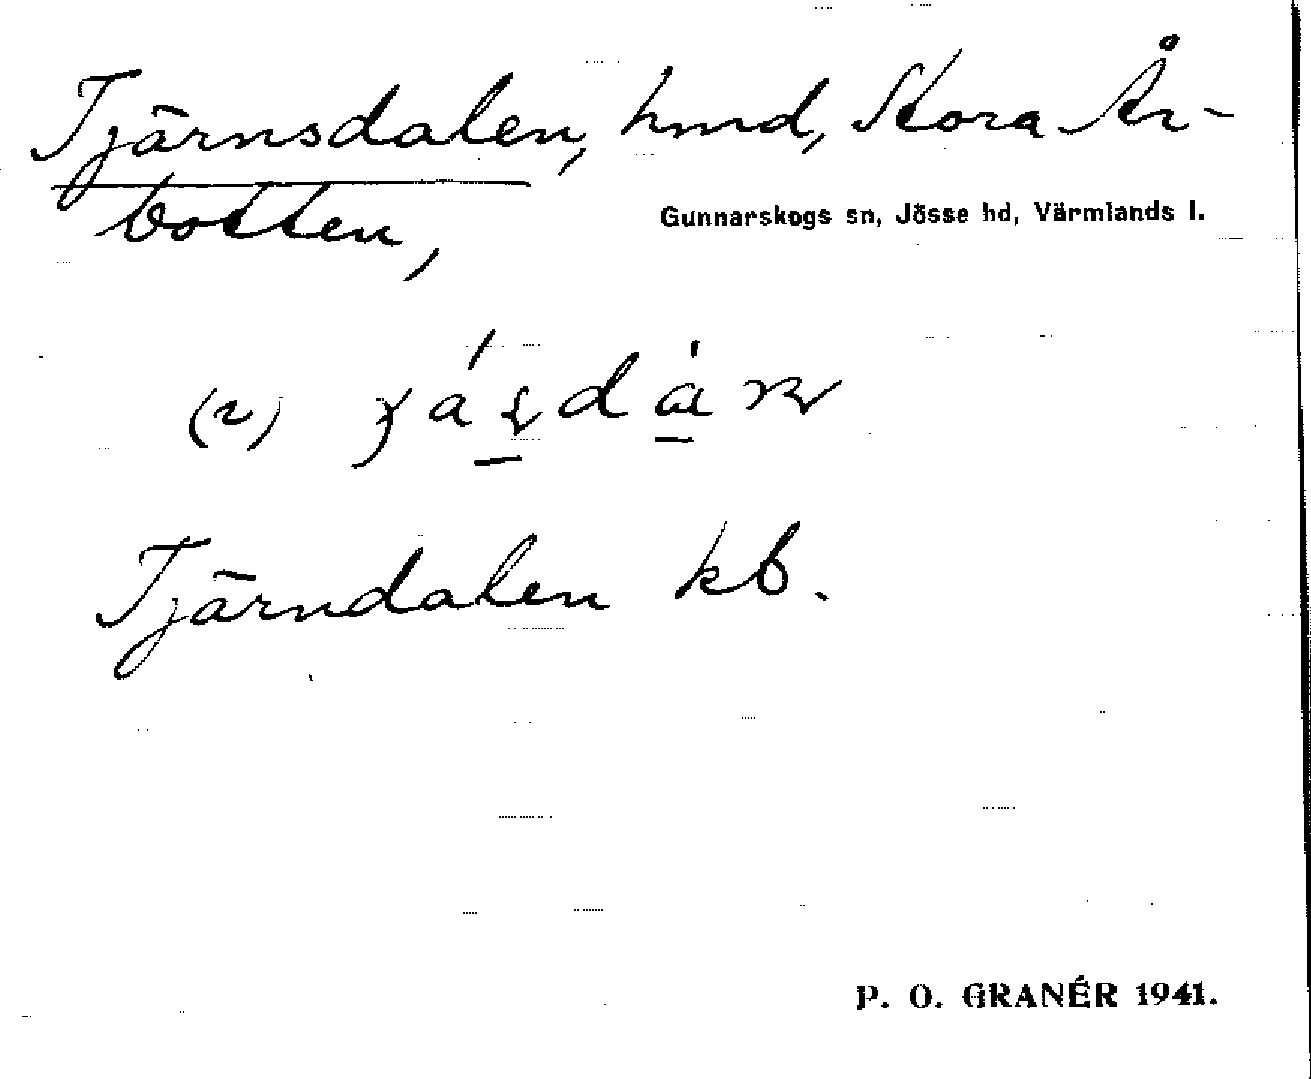 Tjärnsdalen, hmd, Stora År-
botten,
Gunnarskogs sn, Jösse hd, Värmlands l.
Tjärndalen kb.
P. O. GRANÉR 1941.